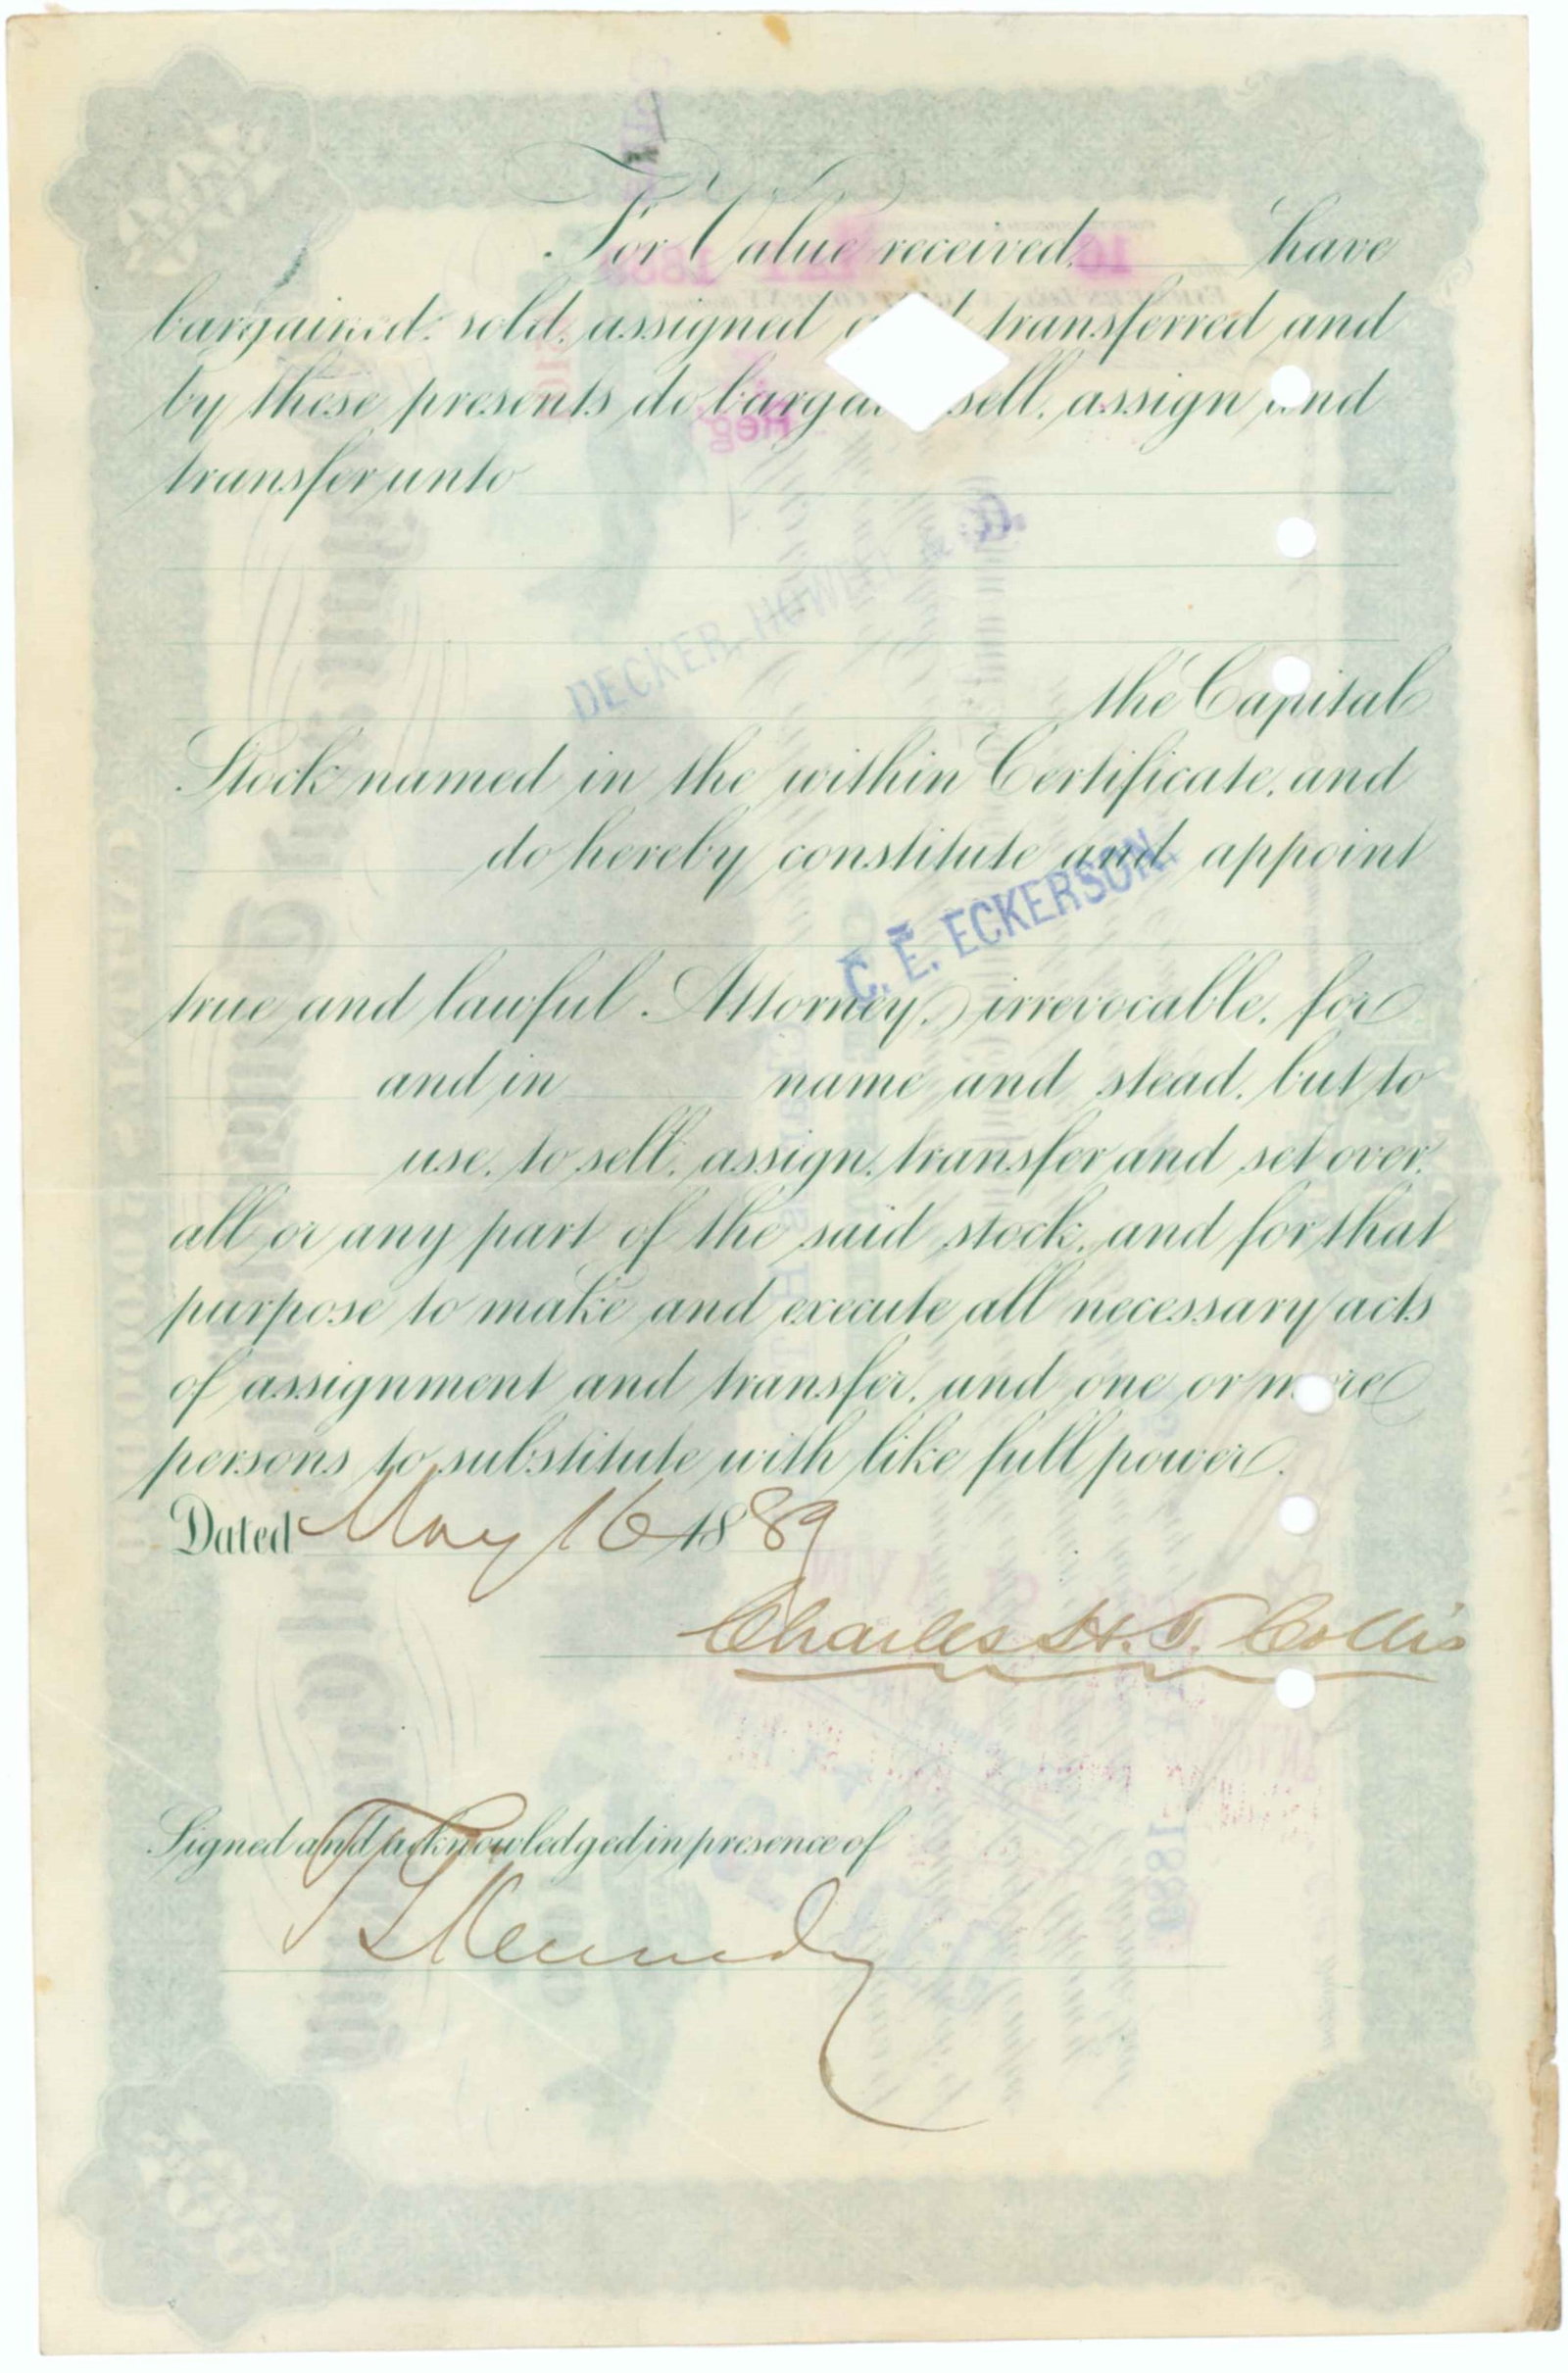 For Value received, have
bargained, sold, assigned transferred and
by these presents do sell, assign and
transfer unto
DECKER, HOWELL & CO.
the Capital
Stock named in the within Certificate, and
do hereby constitute and appoint
C. E. ECKERSON.
true and lawful Attorney, irrevocable, for
and in name and stead, but to
use, to sell, assign, transfer and set over,
all or any part of the said stock, and for that
purpose to make and execute all necessary acts
of assignment and transfer, and one or more
persons to substitute with like full power.
Dated May 16 1889
Charles H. T. Collis
Signed and acknowledged in presence of
Kennedy